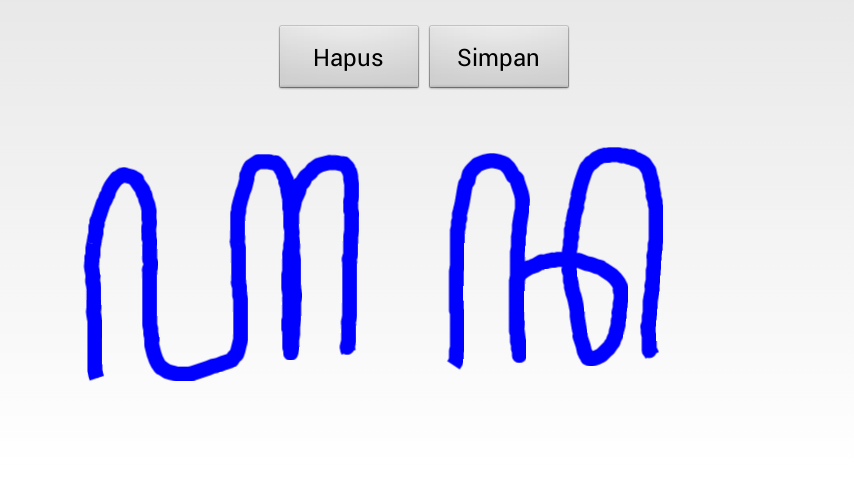 Hapus Simpan
ꦲꦤ